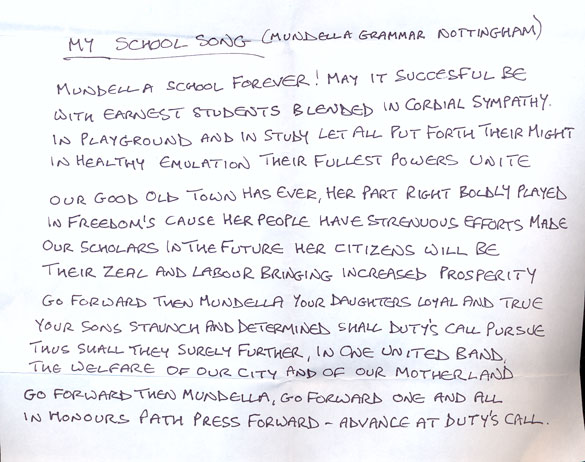 MY SCHOOL SONG (MUNDELLA GRAMMAR NOTTINGHAM)
MUNDELLA SCHOOL FOREVER! MAY IT SUCCESFUL BE
WITH EARNEST STUDENTS BLENDED IN CORDIAL SYMPATHY.
IN PLAYGROUND AND IN STUDY LET ALL PUT FORTH THEIR MIGHT
IN HEALTHY EMULATION THEIR FULLEST POWERS UNITE
OUR GOOD OLD TOWN HAS EVER, HER PART RIGHT BOLDLY PLAYED
IN FREEDOM'S CAUSE HER PEOPLE HAVE STRENUOUS EFFORTS MADE
OUR SCHOLARS IN THE FUTURE HER CITIZENS WILL BE
THEIR ZEAL AND LABOUR BRINGING INCREASED PROSPERITY
GO FORWARD THEN MUNDELLA YOUR DAUGHTERS LOYAL AND TRUE
YOUR SONS STAUNCH AND DETERMINED SHALL DUTY'S CALL PURSUE
THUS SHALL THEY SURELY FURTHER, IN ONE UNITED BAND,
THE WELFARE OF OUR CITY AND OF OUR MOTHERLAND
GO FORWARD THEN MUNDELLA, GO FORWARD ONE AND ALL
IN HONOURS PATH PRESS FORWARD - ADVANCE AT DUTY'S CALL.